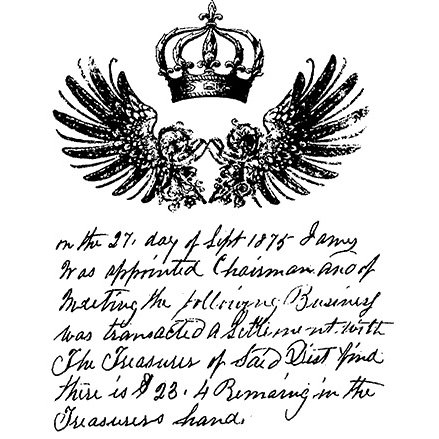 on the 27. day of Sept 1875 James
Was appointed Chairman and of
Meeting the following Business
was transacted a Settlement with
The Treasurer of Said Dist find
there is $ 23.4 Remaing in the
Treasurers hand.